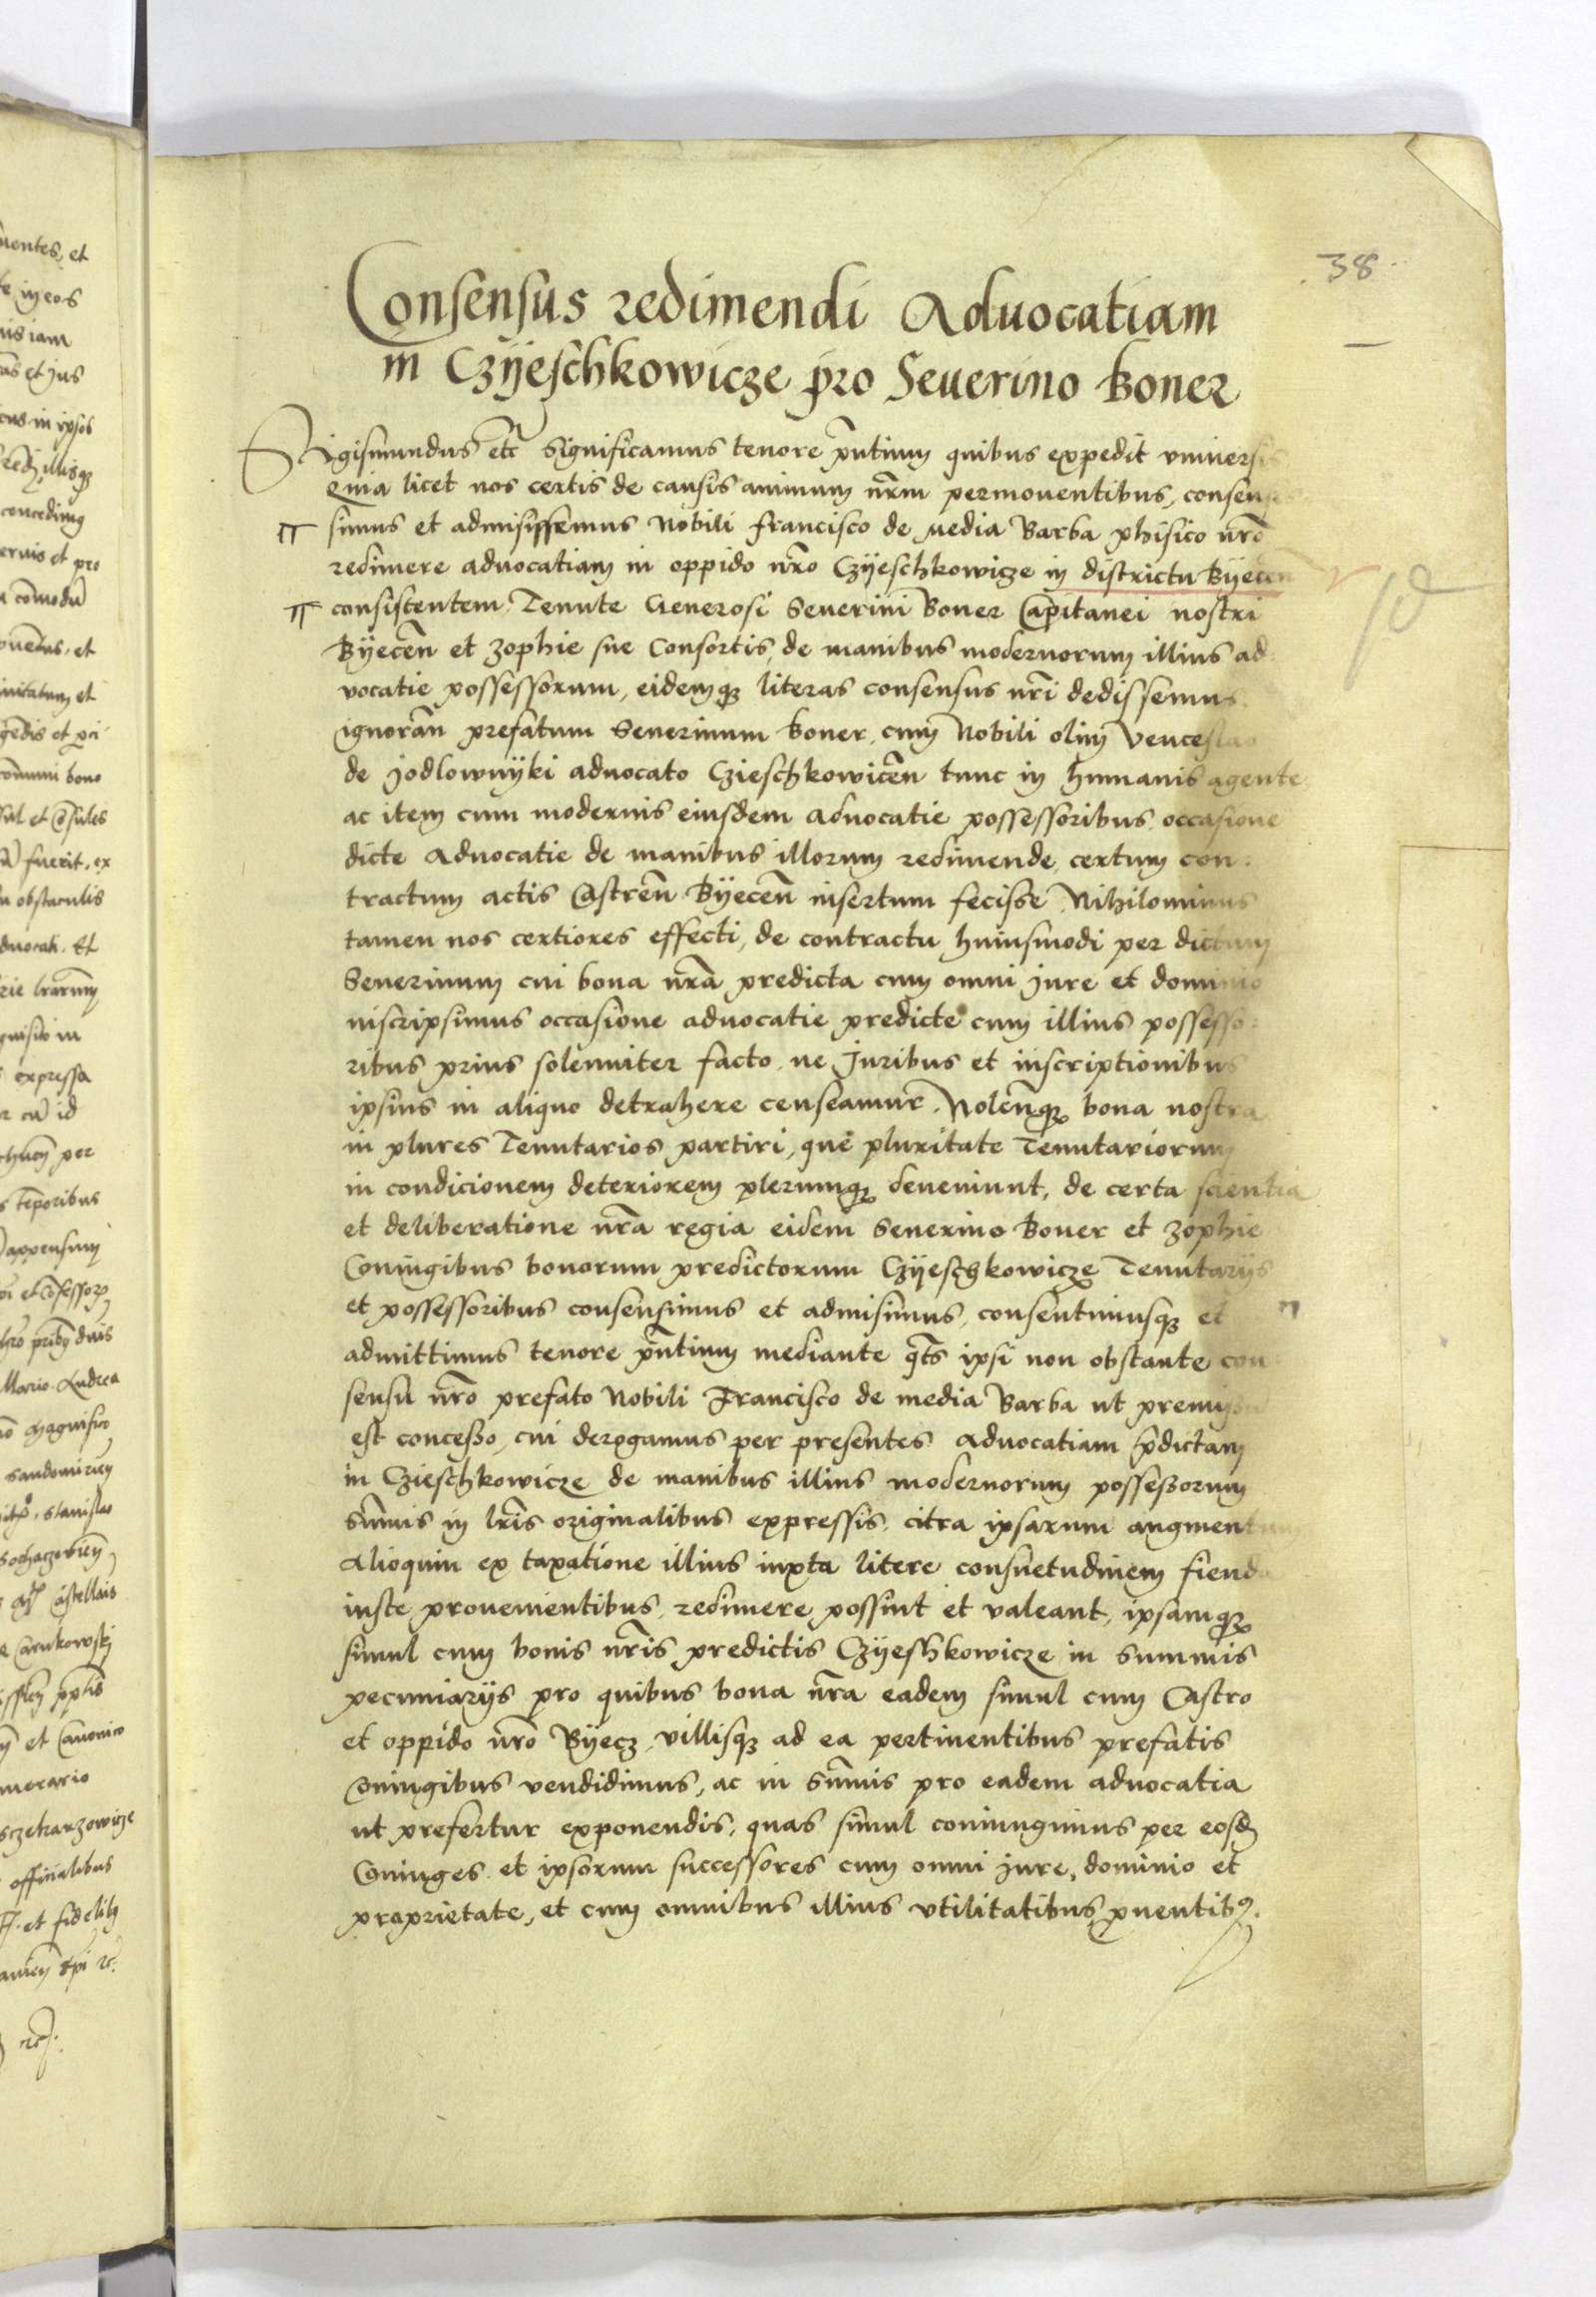 38
Consensus redimendi Aduocatiam
in Czÿeschkowicze pro Seuerino Boner
Sigismundus etc̃ Significamus tenore p̃ntium quibus expedit vniuersis
Quia licet nos certis de causis animum nr̃m permouentibus, consens
simus et admisissemus Nobili Francisco de Media Barba phisico nr̃o
redimere aduocatiam in oppido nr̃o Czÿeschkowicze in districtu Bÿecen̄
consistentem Tenute Generosi Seuerini Boner Capitanei nostri
Bÿecen̄ et Zophie sue Consortis, de manibus modernorum illius ad:
vocatie possessorum, eidemqꝫ literas consensus nr̃i dedissemus.
ignoran̄ prefatum Seuerinum Boner, cum Nobili olim Venceslao
de Jodlownÿki aduocato Czieschkowicen̄ tunc in humanis agente
ac item cum modernis eiusdem Aduocatie possessoribus, occasione
dicte Aduocatie de manibus illorum redimende, certum con:
tractum actis Castren̄ Bÿecen̄ insertum fecisse Nihilominus
tamen nos certiores effecti, de contractu huiusmodi per dictum
Seuerinum cui bona nr̃a predicta cum omni jure et dominio
inscripsimus occasione aduocatie predicte cum illius possesso:
ribus prius solenniter facto, ne Juribus et inscriptionibus
ipsius in aliquo detrahere censeamur. Nolen̄qꝫ bona nostra
in plures Tenutarios partiri, que pluritate Tenutariorum
in condicionem deteriorem plerumqꝫ deueniunt, de certa scientia
et deliberatione nr̃a regia eidem Seuerino Boner et Zophie
Coniugibus bonorum predictorum Czÿeschkowicze Tenutarÿs
et possessoribus consensimus et admisimus, consentimusqꝫ et
admittimus tenore p̃ntium mediante q̃ts ipsi non obstante con:
sensu nr̃o prefato Nobili Francisco de media Barba ut premissu
est concesso, cui derogamus per presentes Aduocatiam p̃dictam
in Czieschkowicze de manibus illius modernorum possessorum
Sum̃is in lr̃is originalibus expressis, citra ipsarum augmentum
Alioquin ex taxatione illius iuxta litere consuetudinem fienda
iuste prouenientibus, redimere possint et valeant, ipsamqꝫ
simul cum bonis nr̃is predictis Czÿeshkowicze in summis
pecuniarÿs pro quibus bona nr̃a eadem simul cum Castro
et oppido nr̃o Bÿecz, villisqꝫ ad ea pertinentibus prefatis
Coniugibus vendidimus, ac in Sum̃is pro eadem aduocatia
ut prefertur exponendis, quas simul coniungimus per eosd̃
Coniuges et ipsorum successores cum omni jure, dominio et
proprietate, et cum omnibus illius vtilitatibus ꝓuentibꝰ.